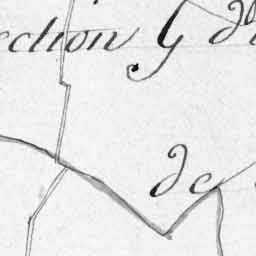 ection G
de